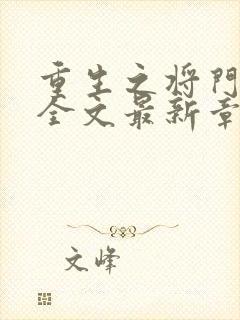 重生之将门
全文最新章
文峰